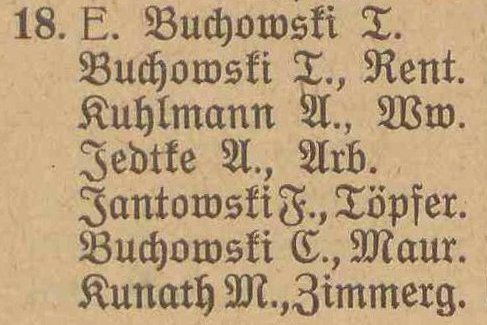 18. E. Buchowski T.
Buchowski T., Rent.
Kuhlmann A., Ww.
Jedtke A., Arb.
Jantowski F., Töpfer.
Buchowski C., Maur.
Kunath M., Zimmerg.